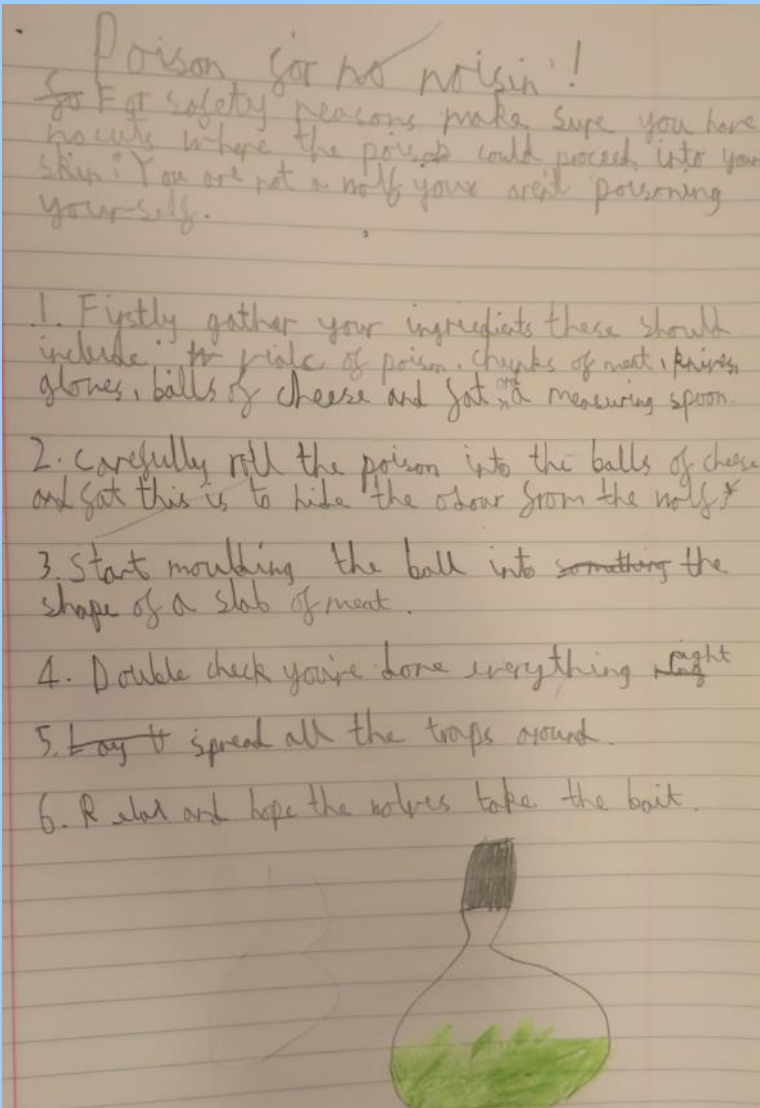 Poison for no noisin'!
So For safety reasons make sure you have
no cuts where the poison could proceed into your
skin! You are not a wolf your arent poisoning
your-self.
1. Firstly gather your ingriedients these should
include: vials of poison, chunks of meat, knives,
gloves, balls of cheese and fat and a measuring spoon.
2. Carefully roll the poison into the balls of cheese
and fat this is to hide the odour from the wolf.
3. Start moulding the ball into something the
shape of a slab of meat.
4. Double check you're done everything right
5. Lay t spread all the traps around.
6. Relax and hope the wolves take the bait.